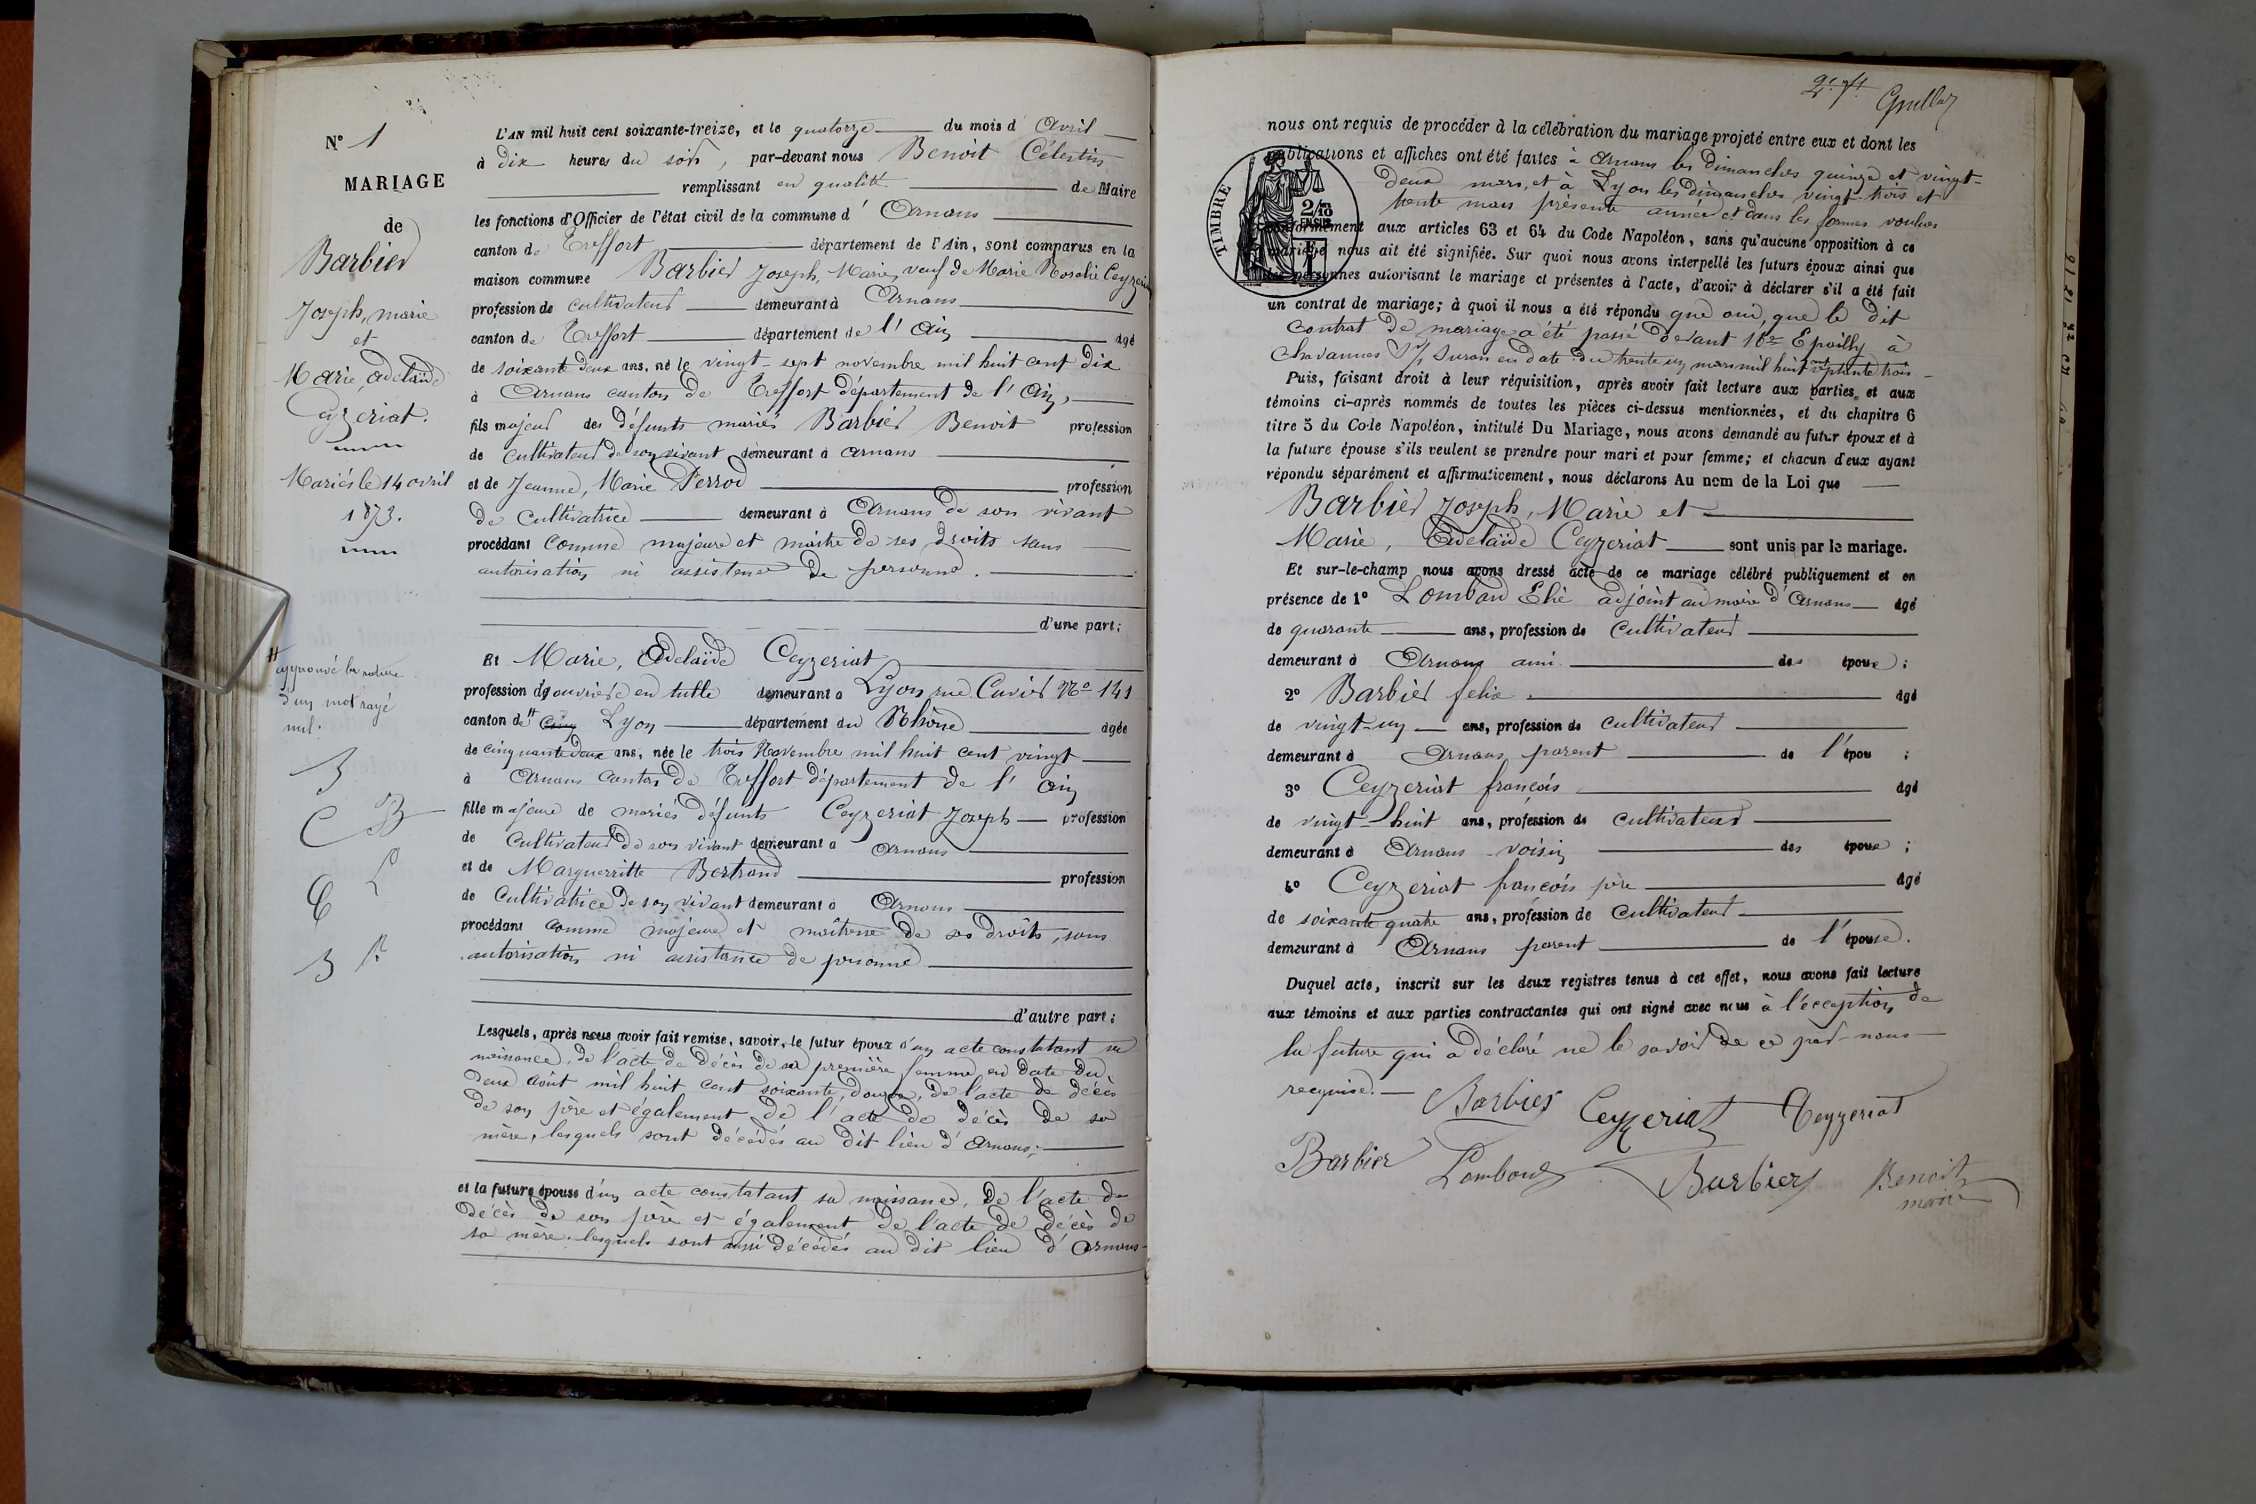 N° 1
MARIAGE
de
Barbier
Joseph, marie
et
Marie, adelaïde
Ceyzeriat.
Mariés le 14 avril
1873.
approuvé la rature
d'un mot rayé
nul.
L'AN mil huit cent soixante-treize, et le quatorze du mois d'Avril
à dix heures du soir, par-devant nous Benoit Célestin
remplissant en qualité de Maire
les fonctions d'Officier de l'état civil de la commune d'Arnans
canton de Treffort département de l'Ain, sont comparus en la
maison commune Barbier Joseph, Marie, veuf de Marie Rosalie Ceyzeriat
profession de cultivateur demeurant à Arnans
canton de Treffort département de l'Ain agé
de soixant deux ans, né le vingt-sept novembre mil huit cent dix
à Arnans canton de Treffort département de l'Ain,
fils majeur des défunts mariés Barbier Benoit profession
de cultivateur de son vivant demeurant à arnans
et de Jeanne, Marie Perrod profession
de cultivatrice demeurant à Arnans de son vivant
procédant comme majeur et maître de ses droits sans
autorisation ni assistence de personne.
d'une part;
Et Marie, Adelaïde Ceyzeriat
profession d'ouvrière en tulle demeurant a Lyon rue Cuvier N° 141
canton de Lyon département du Rhône agée
de cinquante deux ans, née le trois Novembre mil huit cent vingt
à Arnans canton de Treffort département de l'Ain
fille majeure de mariés défunts Ceyzeriat Joseph profession
de cultivateur de son vivant demeurant a arnans
et de Marguerritte Bertrand profession
de cultivatrice de son vivant demeurant à Arnans
procédant comme majeure et maîtresse de ses droits, sans
autorisation ni assistance de personne
d'autre part;
Lesquels, après nous avoir fait remise, savoir, le futur époux d'un acte constatant sa
naissance, de l'acte de décès de sa première femme en date du
deux août mil huit cent soixante, douze, de l'acte de décès
de son père et également de l'acte de décès de sa
mère, lesquels sont décédés au dit lieu d'Arnans;
et la future épouse d'un acte constatant sa naissance, de l'acte de
décès de son père et également de l'acte de décès de
sa mère. lesquels sont aussi décédés au dit lieu d'Arnans
TIMBRE
2/10
EN SUS
nous ont requis de procéder à la célébration du mariage projeté entre eux et dont les
publications et affiches ont été faites à Arnans les dimanches quinze et vingt-
deux mars, et à Lyon les dimanches vingt-trois et
trente mars présente année et dans les formes voulues
conformément aux articles 63 et 64 du Code Napoléon, sans qu'aucune opposition à ce
mariage nous ait été signifiée. Sur quoi nous avons interpellé les futurs époux ainsi que
les personnes autorisant le mariage et présentes à l'acte, d'avoir à déclarer s'il a été fait
un contrat de mariage; à quoi il nous a été répondu que oui, que le dit
contrat de mariage a été passé devant Me Epailly à
Chavannes S/ Suran en date du trente un mars mil huit cent septante trois
Puis, faisant droit à leur réquisition, après avoir fait lecture aux parties, et aux
témoins ci-après nommés de toutes les pièces ci-dessus mentionnées, et du chapitre 6
titre 5 du Code Napoléon, intitulé Du Mariage, nous avons demandé au futur époux et à
la future épouse s'ils veulent se prendre pour mari et pour femme; et chacun d'eux ayant
répondu séparément et affirmativement, nous déclarons Au nom de la Loi que
Barbier Joseph, Marie et
Marie, Adelaïde Ceyzeriat sont unis par le mariage.
Et sur-le-champ nous avons dressé acte de ce mariage célébré publiquement et en
présence de 1° Lombard Elie adjoint au maire d'Arnans agé
de quarante ans, profession de cultivateur
demeurant à Arnans ami des époux;
2° Barbier felix agé
de vingt-un ans, profession de cultivateur
demeurant à Arnans parent de l'épou ;
3° Ceyzeriat françois agé
de vingt-huit ans, profession de cultivateur
demeurant à Arnans voisin des époux ;
4° Ceyzeriat françois père agé
de soixante quatre ans, profession de cultivateur
demeurant à Arnans parent de l'épouse.
Duquel acte, inscrit sur les deux registres tenus à cet effet, nous avons fait lecture
aux témoins et aux parties contractantes qui ont signé avec nous à l'exception de
la future qui a déclaré ne le savoir de ce par nous
requise.
Barbier Ceyzeriat Ceyzeriat
Barbier Lombard Barbier Benoit
maire